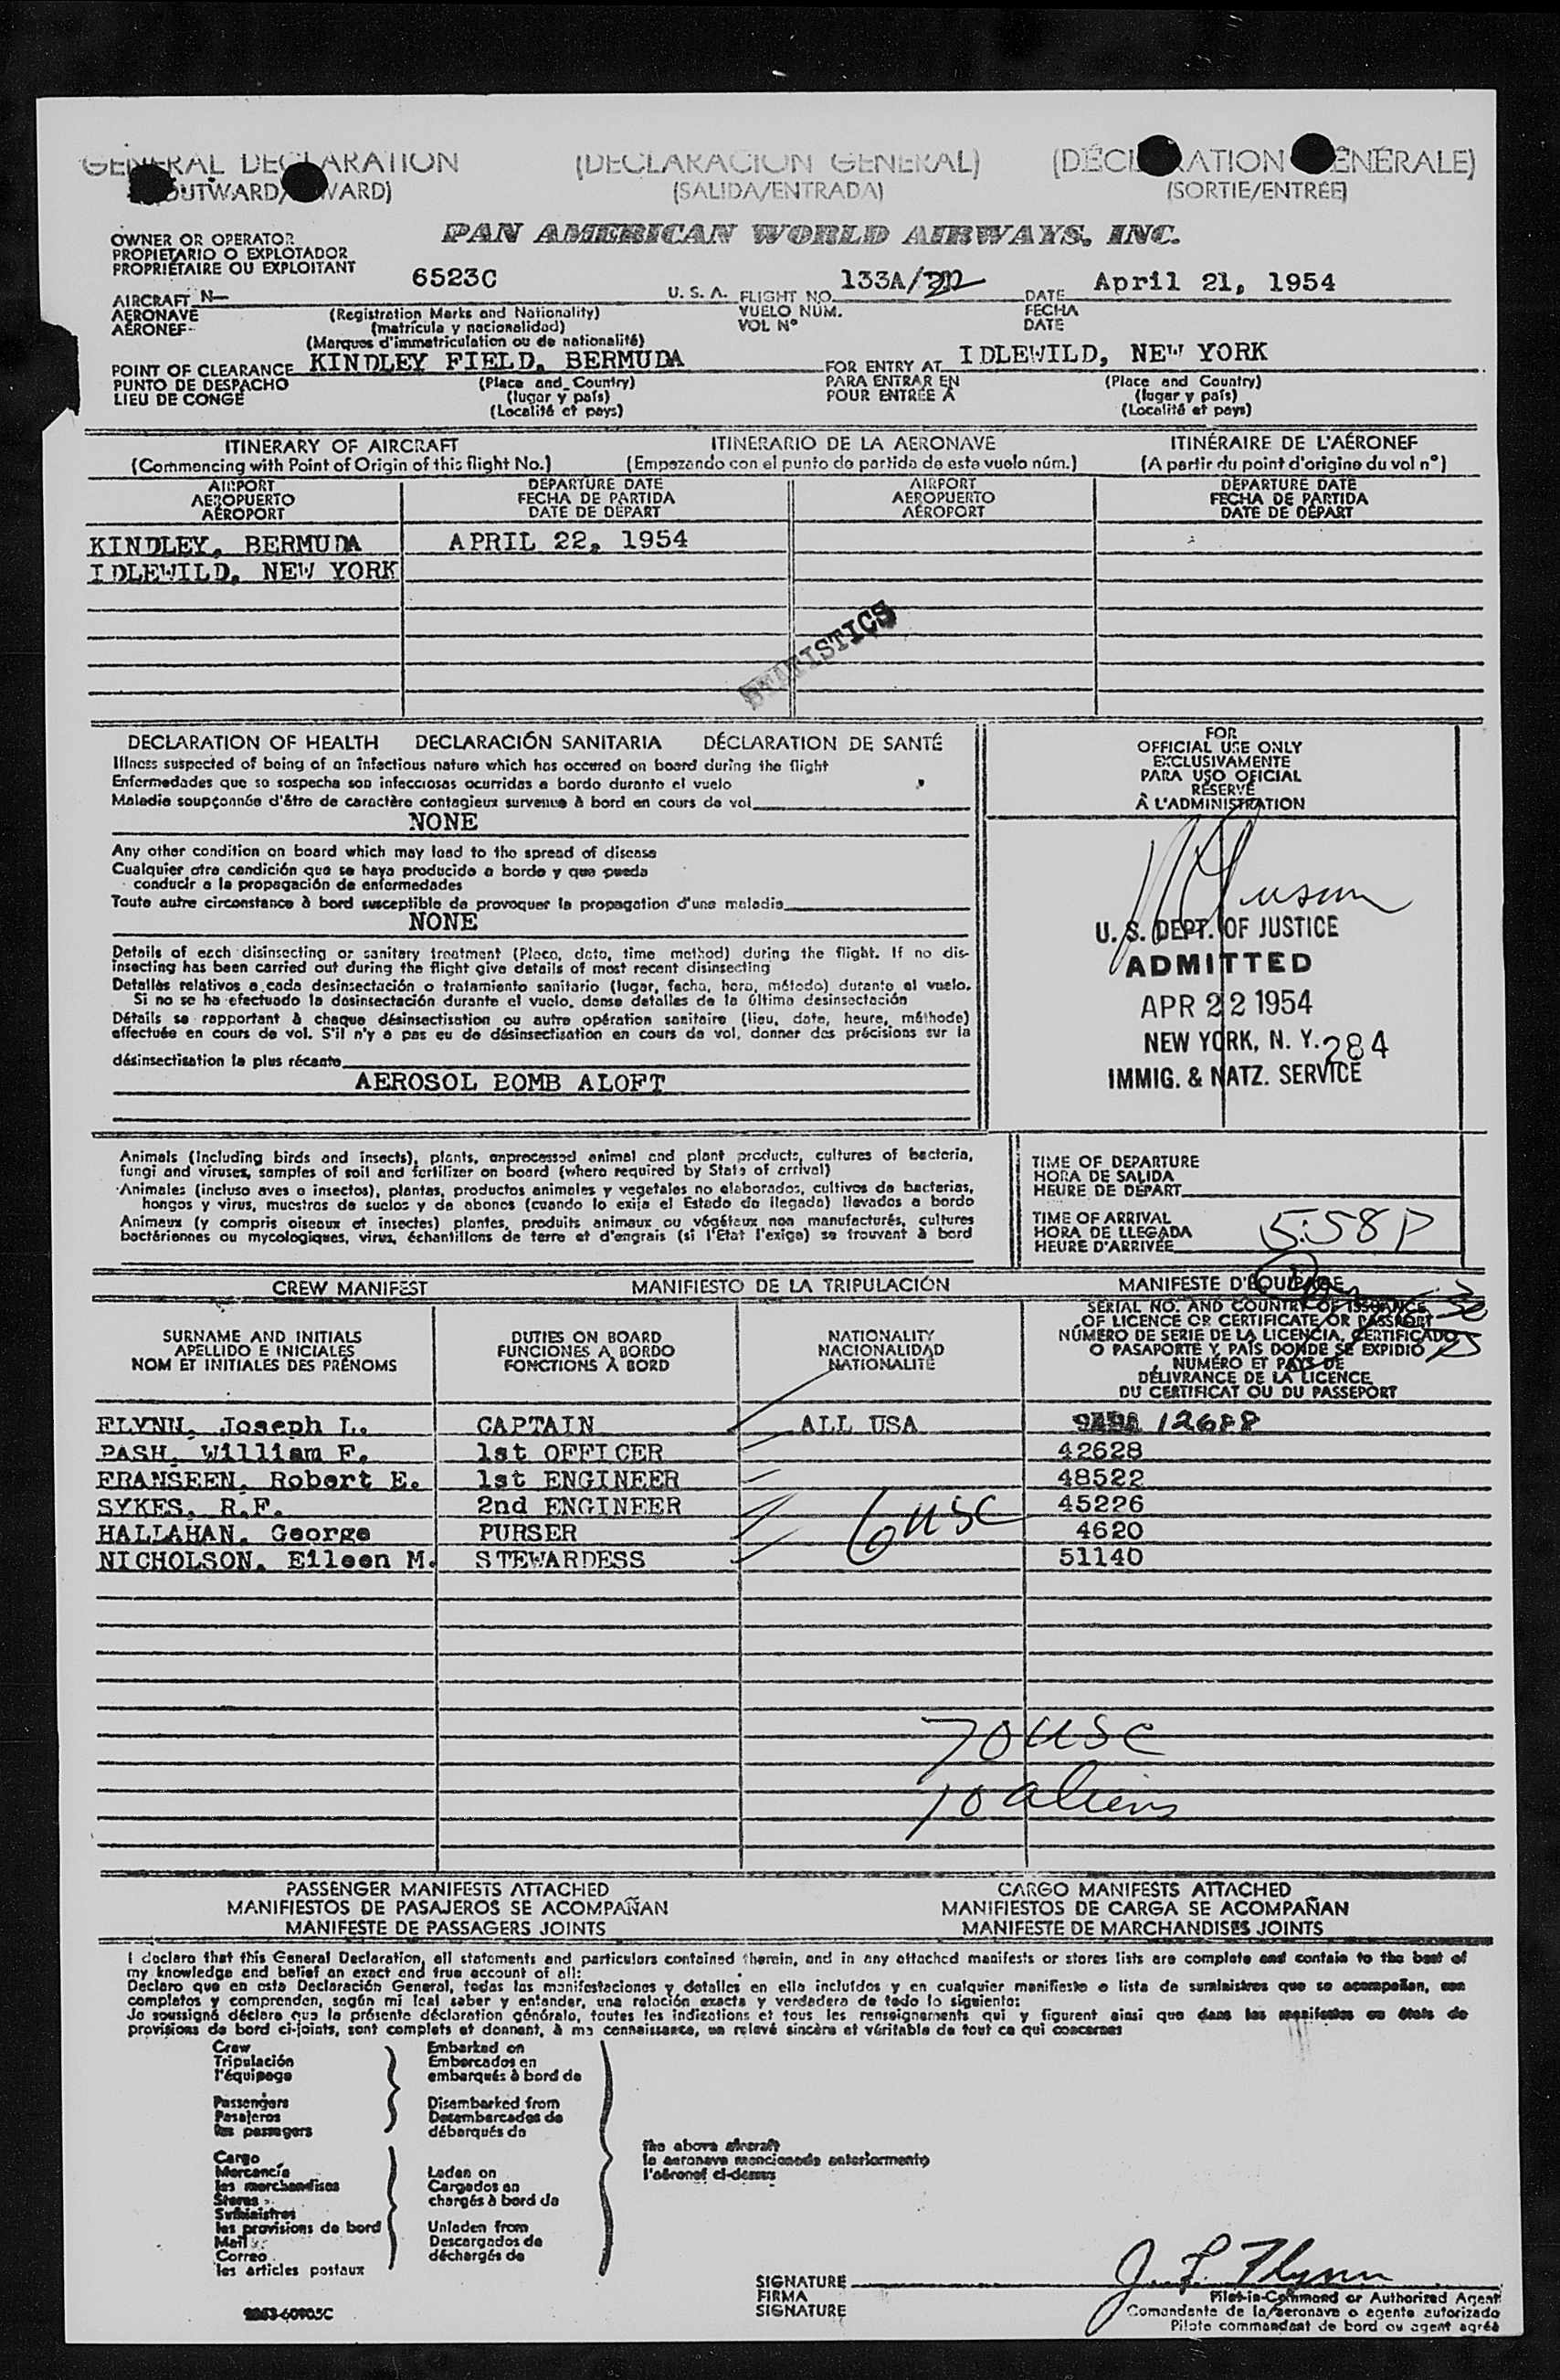 GENERAL DECLARATION (DECLARACIÓN GENERAL) (DÉCLARATION GÉNÉRALE)
(OUTWARD/INWARD) (SALIDA/ENTRADA) (SORTIE/ENTRÉE)
OWNER OR OPERATOR
PROPIETARIO O EXPLOTADOR
PROPRIÉTAIRE OU EXPLOITANT
PAN AMERICAN WORLD AIRWAYS, INC.
AIRCRAFT N— 6523C U. S. A. FLIGHT NO. 133A/ DATE April 21, 1954
AERONAVE (Registration Marks and Nationality) VUELO NÚM. FECHA
AÉRONEF (matrícula y nacionalidad) VOL Nº DATE
(Marques d'immatriculation ou de nationalité)
POINT OF CLEARANCE KINDLEY FIELD, BERMUDA FOR ENTRY AT IDLEWILD, NEW YORK
PUNTO DE DESPACHO (Place and Country) PARA ENTRAR EN (Place and Country)
LIEU DE CONGÉ (lugar y país) POUR ENTRÉE À (lugar y país)
(Localité et pays) (Localité et pays)
ITINERARY OF AIRCRAFT ITINERARIO DE LA AERONAVE ITINÉRAIRE DE L'AÉRONEF
(Commencing with Point of Origin of this flight No.) (Empezando con el punto de partida de este vuelo núm.) (A partir du point d'origine du vol nº)
AIRPORT DEPARTURE DATE AIRPORT DEPARTURE DATE
AEROPUERTO FECHA DE PARTIDA AEROPUERTO FECHA DE PARTIDA
AÉROPORT DATE DE DÉPART AÉROPORT DATE DE DÉPART
KINDLEY, BERMUDA APRIL 22, 1954
IDLEWILD, NEW YORK
STATISTICS
DECLARATION OF HEALTH DECLARACIÓN SANITARIA DÉCLARATION DE SANTÉ
Illness suspected of being of an infectious nature which has occured on board during the flight
Enfermedades que se sospecha son infecciosas ocurridas a bordo durante el vuelo
Maladie soupçonnée d'être de caractère contagieux survenue à bord en cours de vol
NONE
Any other condition on board which may lead to the spread of disease
Cualquier otra condición que se haya producido a bordo y que pueda
conducir a la propagación de enfermedades
Toute autre circonstance à bord susceptible de provoquer la propagation d'une maladie
NONE
Details of each disinsecting or sanitary treatment (Place, date, time method) during the flight. If no dis-
insecting has been carried out during the flight give details of most recent disinsecting
Detalles relativos a cada desinsectación o tratamiento sanitario (lugar, fecha, hora, método) durante el vuelo.
Si no se ha efectuado la desinsectación durante el vuelo, dense detalles de la última desinsectación
Détails se rapportant à chaque désinsectisation ou autre opération sanitaire (lieu, date, heure, méthode)
effectuée en cours de vol. S'il n'y a pas eu de désinsectisation en cours de vol, donner des précisions sur la
désinsectisation la plus récente
AEROSOL BOMB ALOFT
FOR
OFFICIAL USE ONLY
EXCLUSIVAMENTE
PARA USO OFICIAL
RÉSERVÉ
À L'ADMINISTRATION
U. S. DEPT. OF JUSTICE
ADMITTED
APR 22 1954
NEW YORK, N. Y. 284
IMMIG. & NATZ. SERVICE
Animals (Including birds and insects), plants, unprocessed animal and plant products, cultures of bacteria,
fungi and viruses, samples of soil and fertilizer on board (where required by State of arrival)
Animales (incluso aves e insectos), plantas, productos animales y vegetales no elaborados, cultivos de bacterias,
hongos y virus, muestras de suelos y de abonos (cuando lo exija el Estado de llegada) llevados a bordo
Animaux (y compris oiseaux et insectes) plantes, produits animaux ou végétaux non manufacturés, cultures
bactériennes ou mycologiques, virus, échantillons de terre et d'engrais (si l'État l'exige) se trouvant à bord
TIME OF DEPARTURE
HORA DE SALIDA
HEURE DE DÉPART
TIME OF ARRIVAL
HORA DE LLEGADA
HEURE D'ARRIVÉE 5:58P
CREW MANIFEST MANIFIESTO DE LA TRIPULACIÓN MANIFESTE D'ÉQUIPAGE
SURNAME AND INITIALS
APELLIDO E INICIALES
NOM ET INITIALES DES PRÉNOMS
DUTIES ON BOARD
FUNCIONES A BORDO
FONCTIONS À BORD
NATIONALITY
NACIONALIDAD
NATIONALITÉ
SERIAL NO. AND COUNTRY OF ISSUANCE
OF LICENCE OR CERTIFICATE OR PASSPORT
NÚMERO DE SERIE DE LA LICENCIA, CERTIFICADO
O PASAPORTE Y PAÍS DONDE SE EXPIDIÓ
NUMÉRO ET PAYS DE
DÉLIVRANCE DE LA LICENCE
DU CERTIFICAT OU DU PASSEPORT
FLYNN, Joseph L. CAPTAIN ALL USA 12688
PASH, William F. 1st OFFICER 42628
FRANSEEN, Robert E. 1st ENGINEER 48522
SYKES, R.F. 2nd ENGINEER 45226
HALLAHAN, George PURSER 4620
NICHOLSON, Eileen M. STEWARDESS 51140
6 USC
70 USC
10 aliens
PASSENGER MANIFESTS ATTACHED CARGO MANIFESTS ATTACHED
MANIFIESTOS DE PASAJEROS SE ACOMPAÑAN MANIFIESTOS DE CARGA SE ACOMPAÑAN
MANIFESTE DE PASSAGERS JOINTS MANIFESTE DE MARCHANDISES JOINTS
I declare that this General Declaration, all statements and particulars contained therein, and in any attached manifests or stores lists are complete and contain to the best of
my knowledge and belief an exact and true account of all:
Declaro que en esta Declaración General, todas las manifestaciones y detalles en ella incluídos y en cualquier manifiesto o lista de suministros que se acompañan, son
completos y comprenden, según mi leal saber y entender, una relación exacta y verdadera de todo lo siguiente:
Je soussigné déclare que la présente déclaration générale, toutes les indications et tous les renseignements qui y figurent ainsi que dans les manifestes ou états de
provisions de bord ci-joints, sont complets et donnent, à ma connaissance, un relevé sincère et véritable de tout ce qui concernes
Crew Embarked on
Tripulación Embarcados en
l'équipage embarqués à bord de
Passengers Disembarked from
Pasajeros Desembarcados de
les passagers débarqués de
the above aircraft
la aeronave mencionada anteriormente
l'aéronef ci-dessus
Cargo
Mercancía Laden on
les marchandises Cargados en
Stores chargés à bord de
Suministros
les provisions de bord Unladen from
Mail Descargados de
Correo déchargés de
les articles postaux
SIGNATURE J. L. Flynn
FIRMA Pilot-in-Command or Authorized Agent
SIGNATURE Comandante de la aeronave o agente autorizado
Pilote commandant de bord ou agent agréé